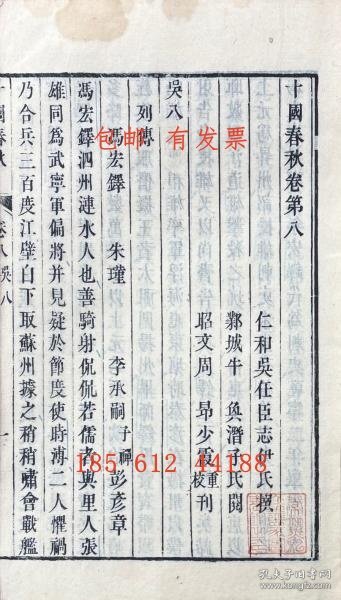 十國春秋卷第八
仁和吳任臣志伊氏撰
鄴城牛奐潛子氏閱
昭文周昂少霞重校刊
吳八
列傳
馮宏鐸 朱瑾 李承嗣 子禰 彭彥章
馮宏鐸泗州漣水人也善騎射侃侃若儒者與里人張
雄同爲武寧軍偏將并見疑於節度使時溥二人懼禍
乃合兵三百度江壁白下取蘇州據之稍稍嘯會戰艦
十國春秋 卷八吳八 一
包邮 有发票
185 612 44188
孔夫子旧书网